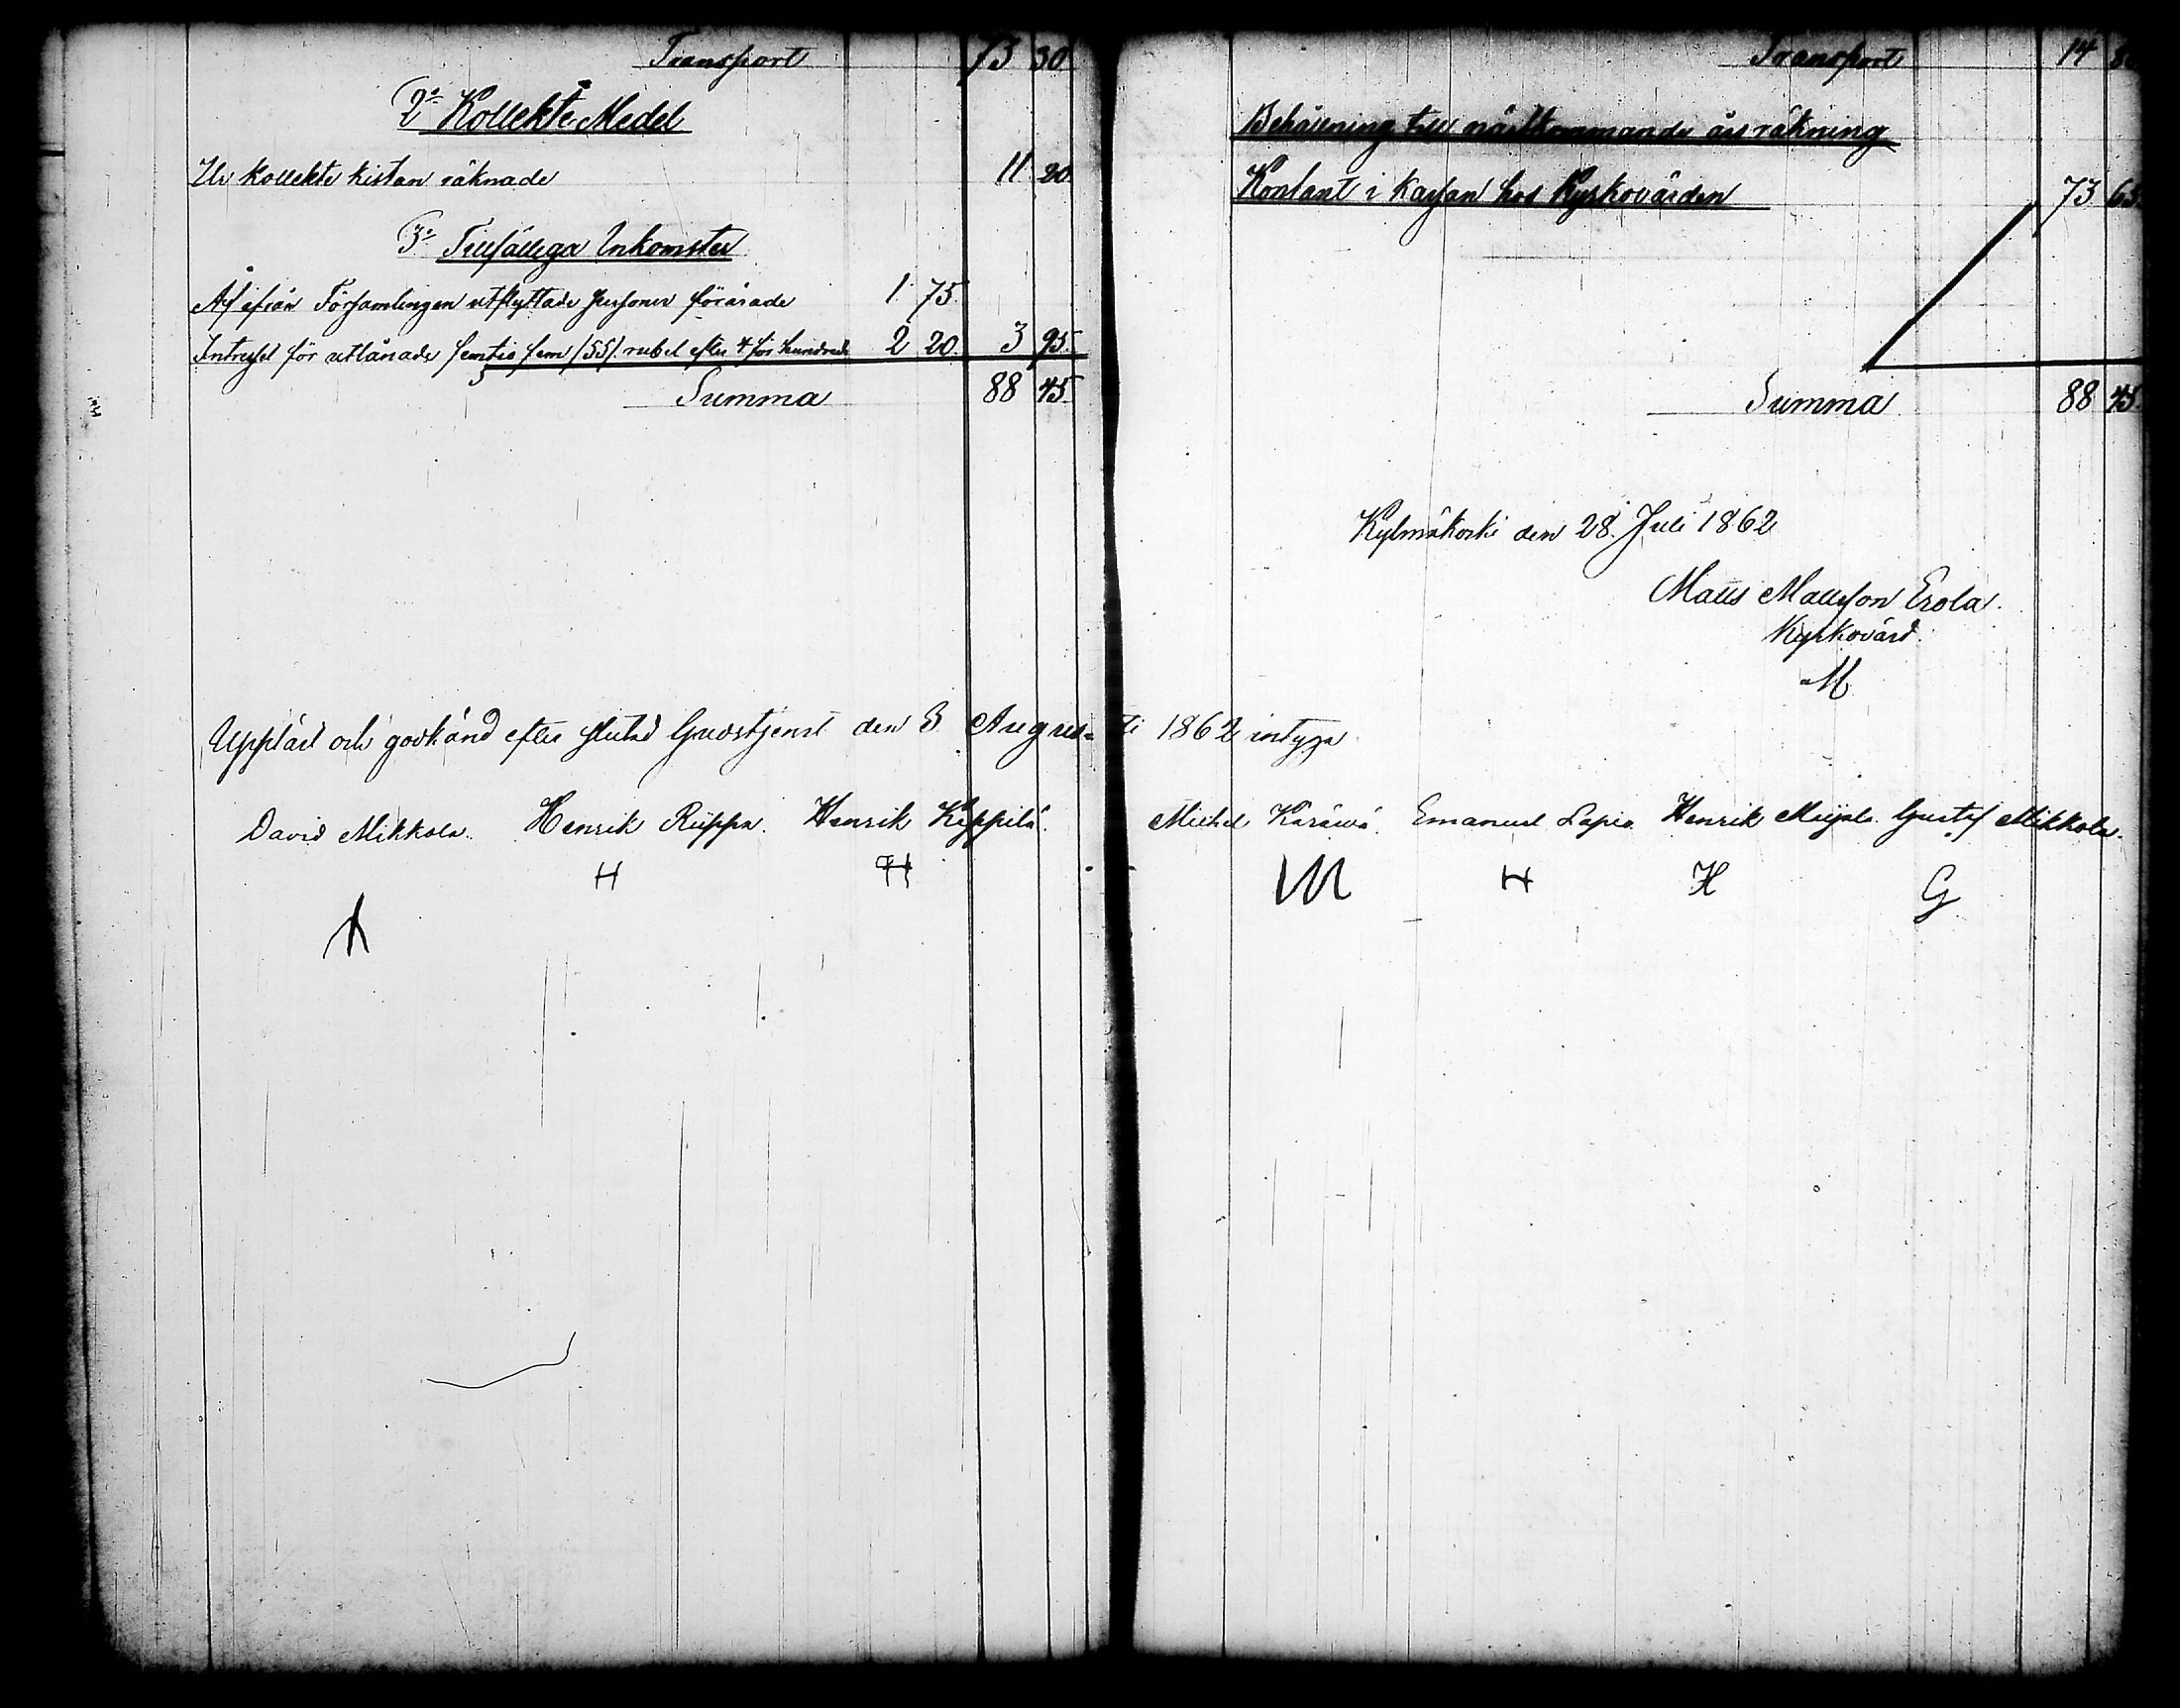 Transport 73 30
2o Kollekte Medel
Ur Kollekte kistan räknade 11 20.
3o Tillfälliga Inkomster
Af ifrån Församlingen utflyttade personer förärade 1. 75.
Intresset för utlånade femtio fem /55/ rubel efter 4 för hundrade 2 20. 3 95.
Summa 88 45.
Transport 14
Behållning till nästkommande års räkning
Kontant i Kassan hos Kyrkovärden 73 65.
Summa 88 45.
Kylmäkoski den 28. Juli 1862
Matts Mattsson Erola.
Kyrkovärd.
M
Uppläst och godkänd efter slutad Gudstjenst den 3 Augus-ti 1862 intyga
David Mikkola. Henrik Riippa. Henrik Keppilä. Michel Emanuel Henrik Gustaf Mikkola.
H H M H H G